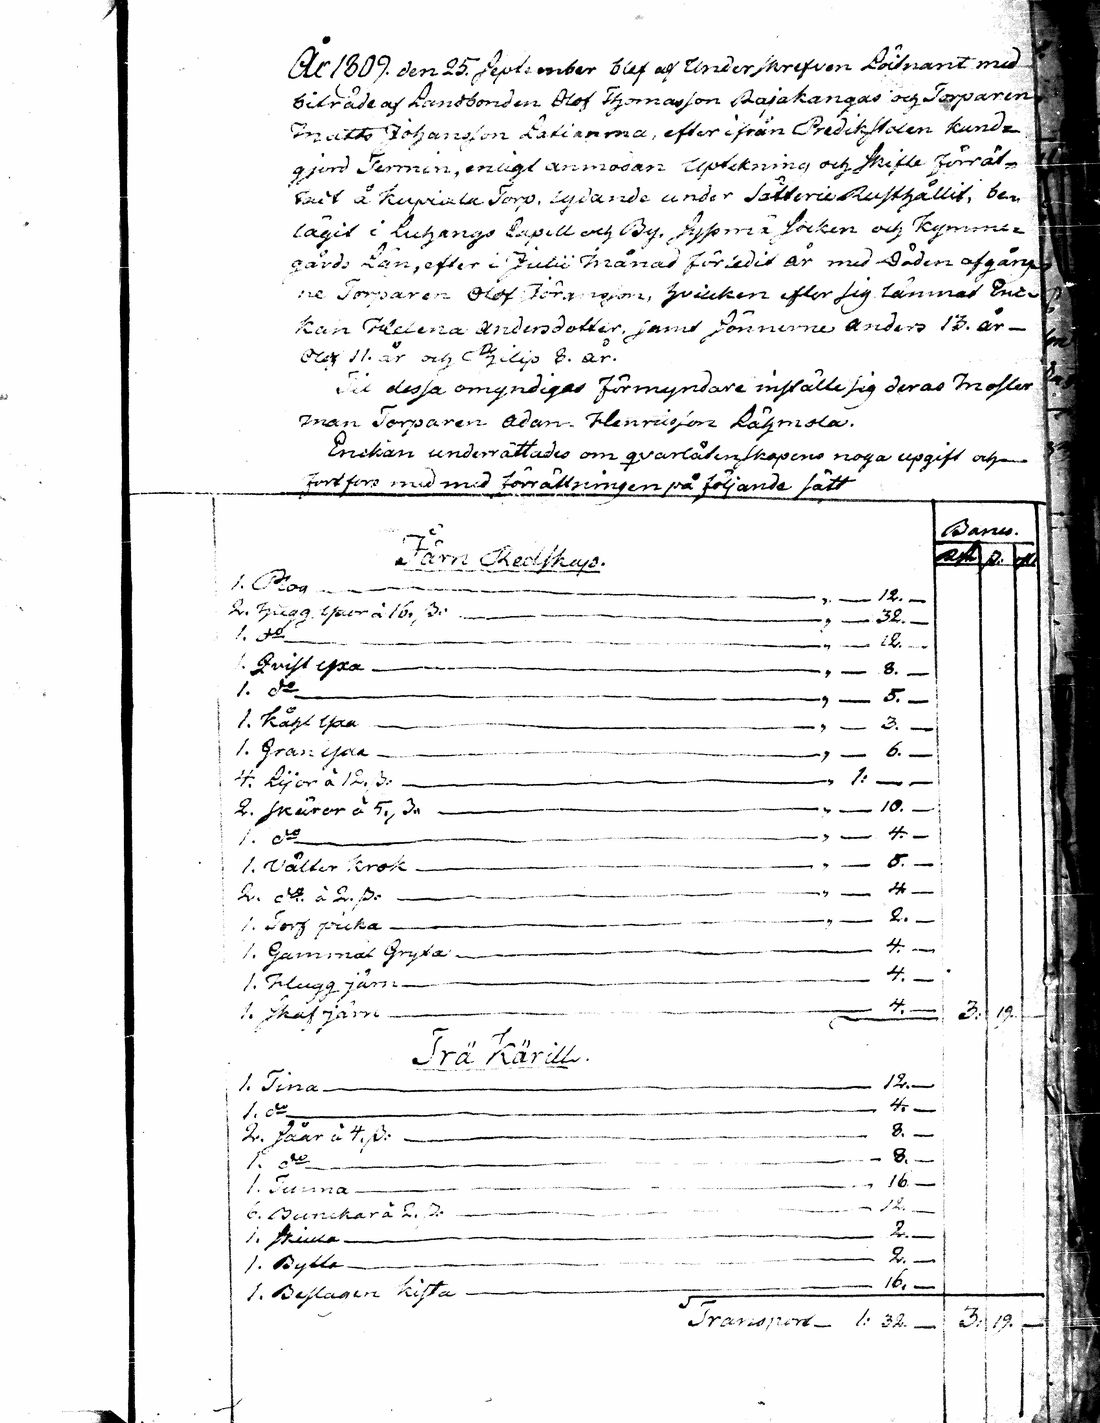 År 1809. den 25. September blef af Underskrefven Löitnant med
biträde af Landbonden Olof Thomasson Rajakangas och Torparen
Matts Johansson Latianma, efter ifrån Predikstolen kund-
gjord Termin, enligt anmodan Uptekning och Skifte förrät-
tadt å Kupiala Torp, lydande under Sätterie Rusthållit, be-
lägit i Luhangs Capell och By, Sysmä Socken och Kymme-
gårds Län, efter i Julii Månad förledit år med Döden afgång-
ne Torparen Olof Göransson, hvilken efter sig lämnat Enc-
kan Helena Andersdotter, samt Sönnerne Anders 13. år
Olof 11. år och Philip 8. år.
Til dessa omyndigas förmyndare instälte sig deras Moster
man Torparen Adam Henricsson Lähmola.
Enckan underrättades om qvarlåtenskapens noga upgift och
fortfors med med förrättningen på följande sätt
Banco.
Järn Redskap.
Rdr ß. rst
1. Plog " — 12. —
2. Hugg yxor à 16. ß: " — 32. —
1. do " — 12. —
1. Qvist yxa " — 8. —
1. do " — 5. —
1. Kåhl yxa " — 3. —
1. Gran yxa " — 6. —
4. Lijor à 12. ß: " 1: — —
2. Skäror à 5. ß: " — 10. —
1. do " — 4. —
1. Välter krok " — 5. —
2. do à 2. ß: " — 4 —
1. Torf picka " — 2. —
1. Gammal Gryta 4. —
1. Hugg järn 4. —
1. Skaf järn 4. — 3: 19. —
Trä Kärill.
1. Tina 12. —
1. do 4. —
2. Såar à 4. ß: 8. —
1. do 8. —
1. Tunna 16 —
6. Bunckar à 2. ß: 12. —
1. Skiula 2. —
1. Bytta 2. —
1. Beslagen Kista 16. —
Transport — 1: 32. — 3: 19. —